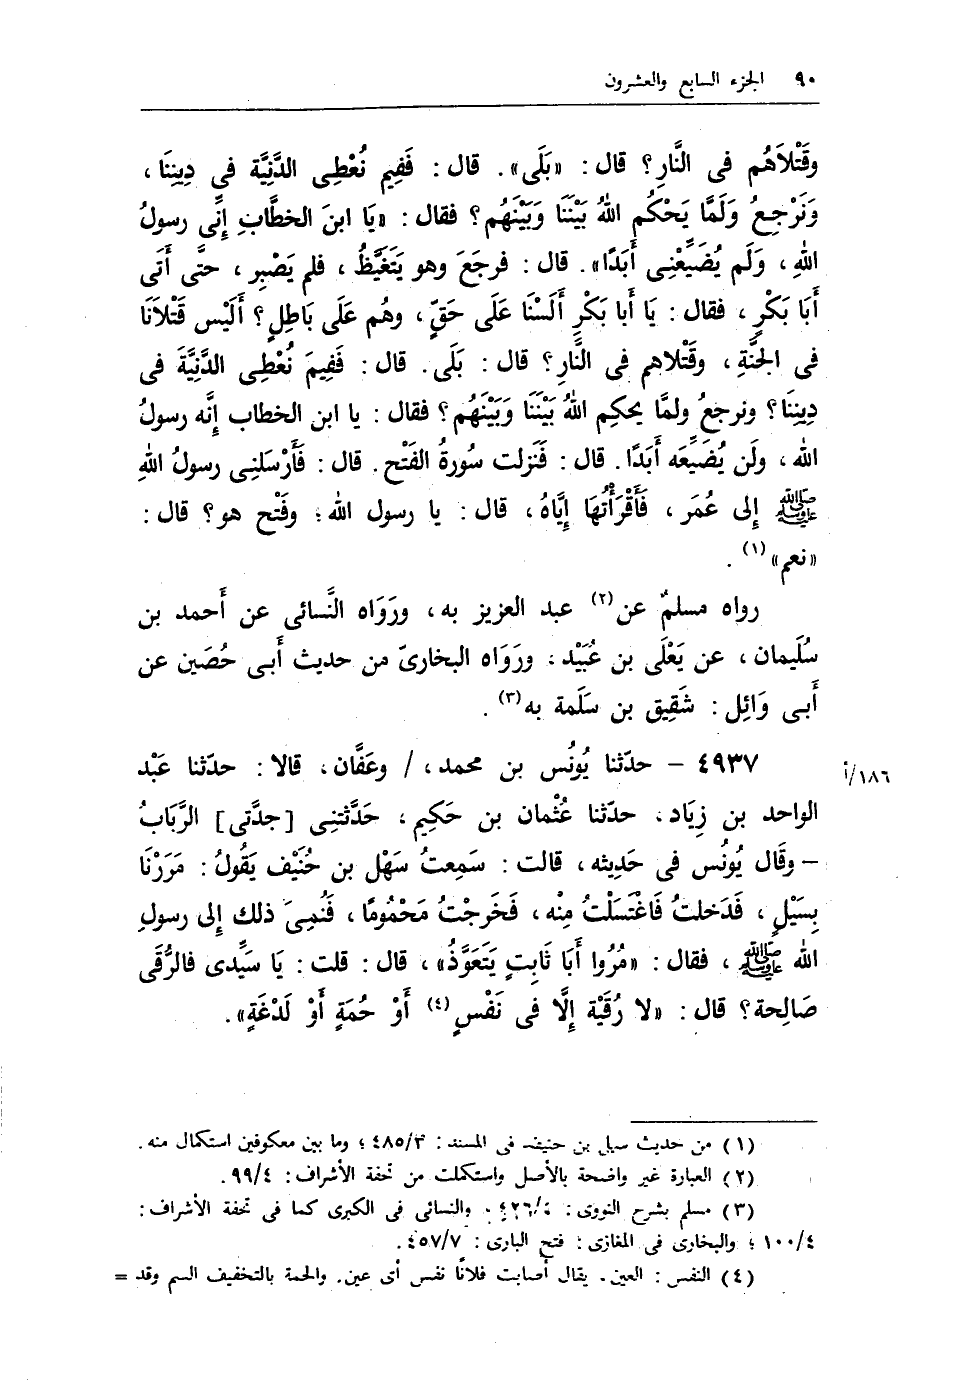 ٩٠ الجزء السابع والعشرون
وقَتْلاَهُم فى النَّارِ؟ قال: «بَلَى». قال: فَفِيم نُعْطِى الدَّنِيَّة فى دِينِنَا،
وَنَرْجِعُ وَلَمَّا يَحْكُم اللهُ بَيْنَنَا وَبَيْنَهُم؟ فقال: «يَا ابنَ الخطَّابِ إِنَّى رسولُ
اللهِ، وَلَم يُضَيِّعْنِى أَبَدًا». قال: فرجَعَ وهو يَتَغَيَّظُ، فلم يَصْبِر، حتَّى أَتَى
أَبَا بَكْرٍ، فقال: يَا أَبا بَكْرٍ أَلَسْنَا عَلَى حَقٍّ، وهُم عَلَى بَاطِلٍ؟ أَلَيْس قَتْلاَنَا
فى الجَنَّةِ، وقَتْلاهم فى النَّارِ؟ قال: بَلَى. قال: فَفِيمَ نُعْطِى الدَّنِيَّةَ فى
دِينِنَا؟ ونرجعُ ولمَّا يحكِم اللهُ بَيْنَنَا وَبَيْنَهُم؟ فقال: يا ابن الخطاب إِنَّه رسولُ
الله، ولَن يُضَيِّعَه أَبَدًا. قال: فَنَزلت سُورةُ الفَتْح. قال: فَأَرْسَلنِى رسولُ اللهِ
ﷺ إلى عُمَر، فَأَقْرَأْتُهَا إِيَّاهُ، قال: يا رسول الله؛ وفَتْح هو؟ قال:
«نعم»(١).
رواه مسلمٌ عن(٢) عبد العزيز به، ورَوَاه النَّسائى عن أَحمد بن
سُلَيمان، عن يَعْلَى بن عُبَيْد، ورَوَاه البخارىّ من حديث أَبى حُصَين عن
أَبى وَائِل: شَقِيق بن سَلَمة به(٣).
٤٩٣٧ - حدّثنا يُونُس بن محمد، / وعَفَّان، قالا: حدّثنا عَبْد
١٨٦/أ
الواحد بن زِيَاد، حدّثنا عُثْمان بن حَكِيم، حَدَّثتنِى [جدَّتى] الرَّبَابُ
- وقَال يُونُس فى حَدِيثه، قالت: سَمِعتُ سَهْل بن حُنَيْف يَقُولُ: مَرَرْنَا
بِسَيْلٍ، فَدَخلتُ فَاغْتَسَلْتُ مِنْه، فَخَرجْتُ مَحْمُومًا، فَنُمِىَ ذلك إلى رسولِ
الله ﷺ، فقال: «مُرُوا أَبَا ثَابِتٍ يَتَعَوَّذُ»، قال: قلت: يَا سَيِّدى فالرُّقَى
صَالِحة؟ قال: «لا رُقْيَة إِلَّا فى نَفْسٍ(٤) أَوْ حُمَةٍ أَوْ لَدْغَةٍ».
(١) من حديث سهل بن حنيف فى المسند: ٤٨٥/٣؛ وما بين معكوفين استكمال منه.
(٢) العبارة غير واضحة بالأصل واستكملت من تحفة الأشراف: ٩٩/٤.
(٣) مسلم بشرح النووى: ٤٢٦/٤، والنسائى فى الكبرى كما فى تحفة الأشراف:
١٠٠/٤؛ والبخارى فى المغازى: فتح البارى: ٤٥٧/٧.
(٤) النفس: العين. يقال أصابت فلانًا نفس أى عين. والحمة بالتخفيف السم وقد =